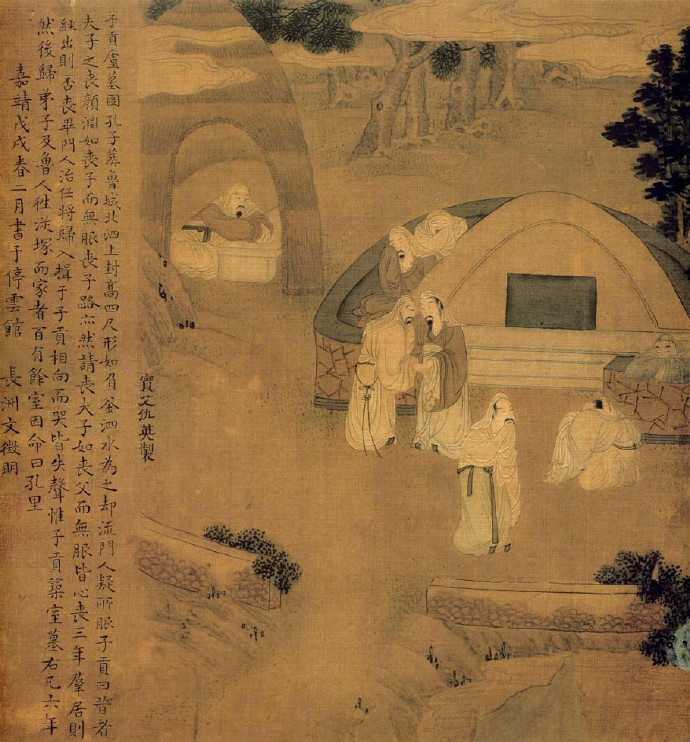 實父仇英製
子貢廬墓圖孔子葬魯城北泗上封高四尺形如負釜泗水為之却流門人疑所服子貢曰昔者
夫子之喪顏淵如喪子而無服喪子路亦然請喪夫子如喪父而無服皆心喪三年羣居則
絰出則否喪畢門人治任將歸入揖于子貢相向而哭皆失聲惟子貢築室墓右凡六年
然後歸弟子及魯人徃從塚而家者百有餘室因命曰孔里
嘉靖戊戌春二月書于停雲館 長洲文徵明